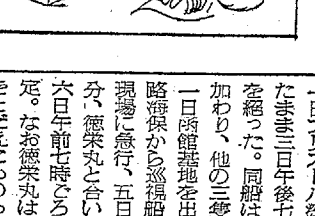 たまま三日午後七
を絶った。同船は
加わり、他の三隻
一日函館基地を出
路海保から巡視船
現場に急行、五日
分、徳栄丸と合い
六日午前七時ごろ
定。なお徳栄丸は